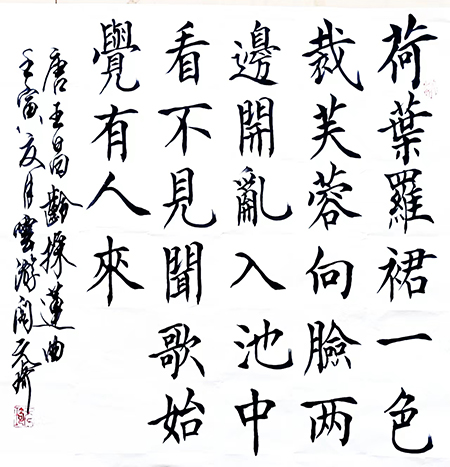 荷葉羅裙一色
裁芙蓉向臉两
邊開亂入池中
看不見聞歌始
覺有人來
唐王昌齡採蓮曲
壬寅夏月雲游